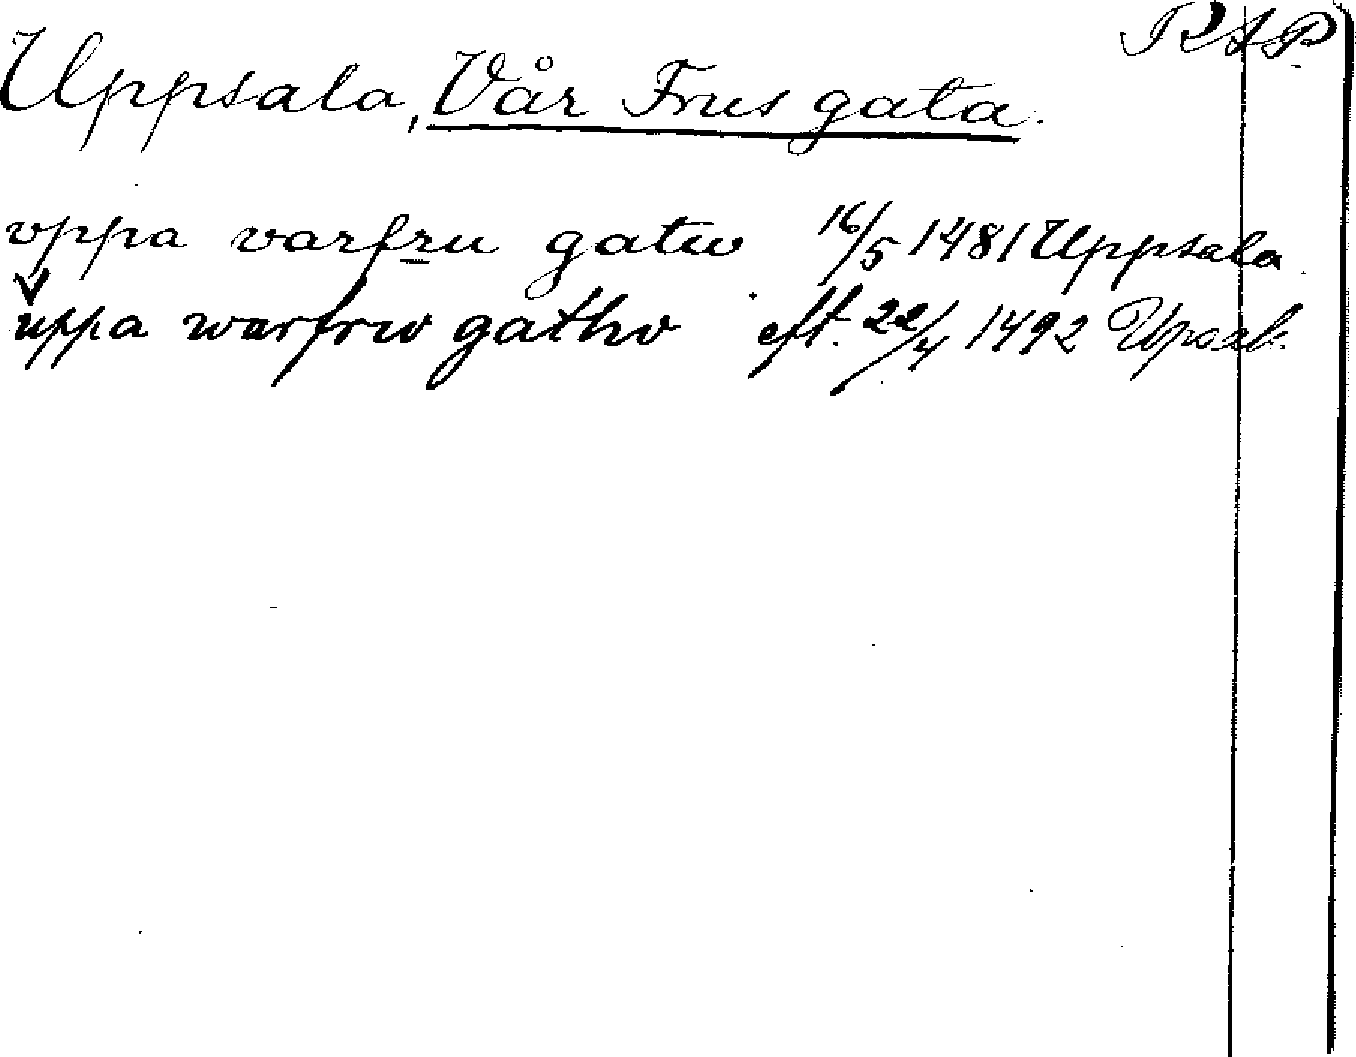 RAP.
Uppsala, Vår Frus gata.
vppa varfru gatw 16/5 1481 Uppsala
v
uppa warfrw gathv eft. 22/4 1492 Upsal.